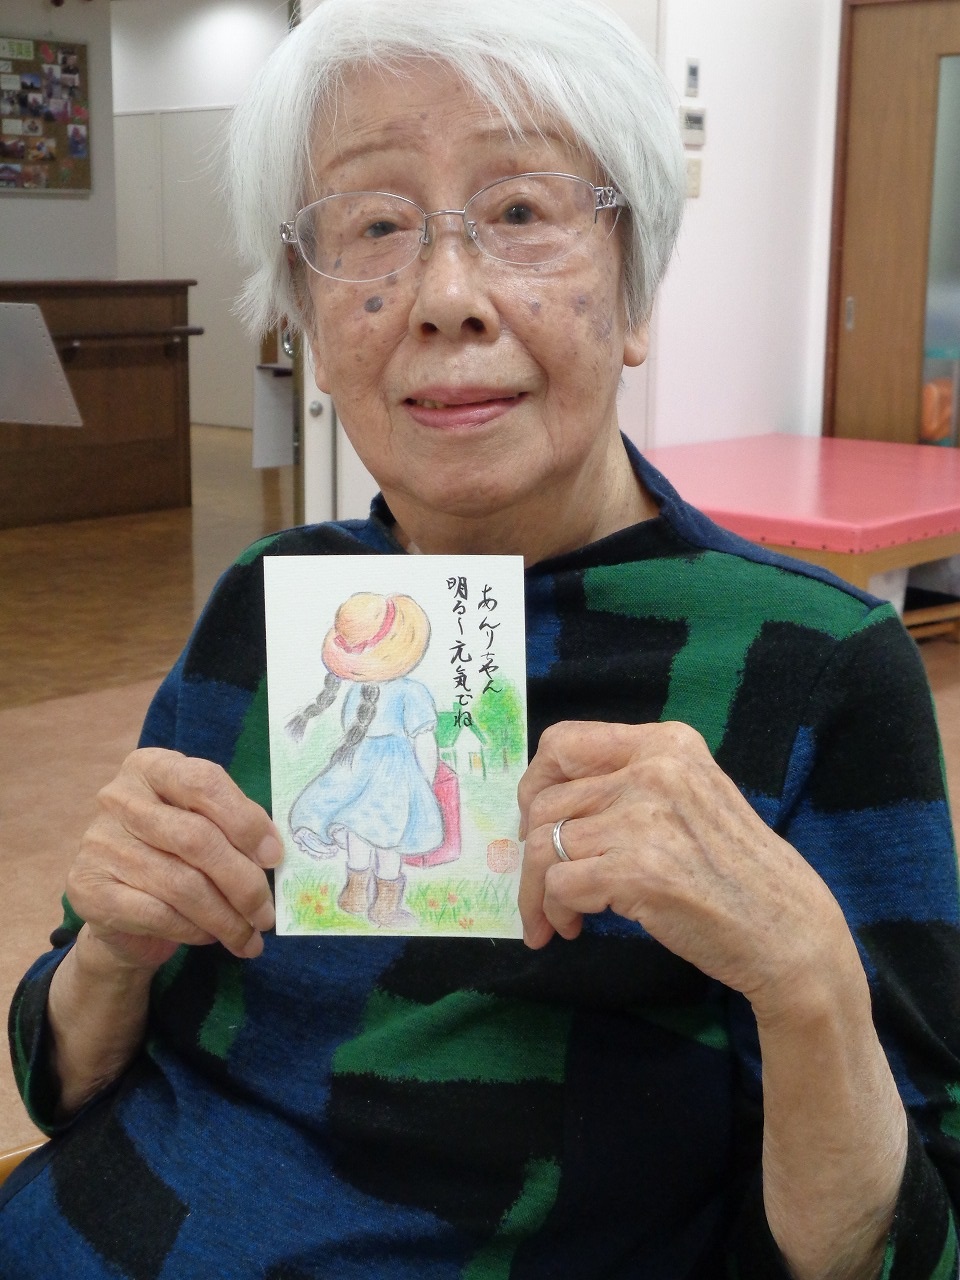 あんりちゃん
明る〜元気でね